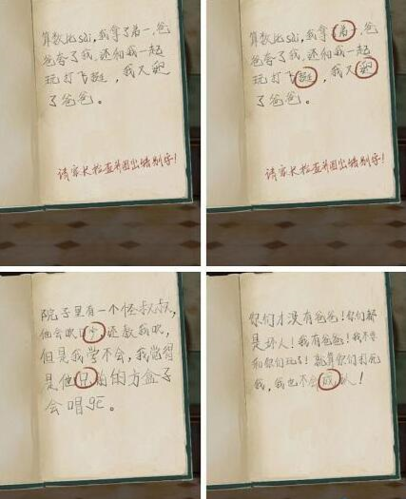 算数比sài,我拿了弟一,爸
爸夸了我,还和我一起
玩打飞挺,我又
了爸爸。
请家长检查并圈出错别字!
算数比sài,我拿了弟一,爸
爸夸了我,还和我一起
玩打飞挺,我又
了爸爸。
请家长检查并圈出错别字!
院子里有一个怪叔叔,
他会吹口少,还教我吹,
但是我学不会,我觉得
是他兄前的方盒子
会唱gē。
你们才没有爸爸!你们都
是坏人!我有爸爸!我不
和你们玩了!就算你们打死
我,我也不会 人!